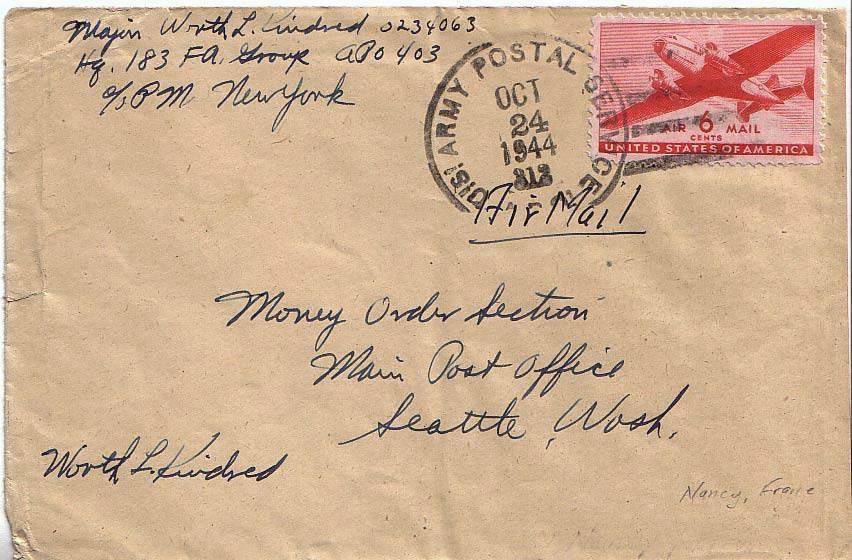 Major Worth L. Kindred 0234063
Hq. 183 FA. Group APO 403
c/o PM New York
ARMY POSTAL SERVICE
OCT
24
1944
AIR 6 MAIL
CENTS
UNITED STATES OF AMERICA
Air Mail
Money Order Section
Main Post Office
Seattle, Wash.
Worth L. Kindred
Nancy, France